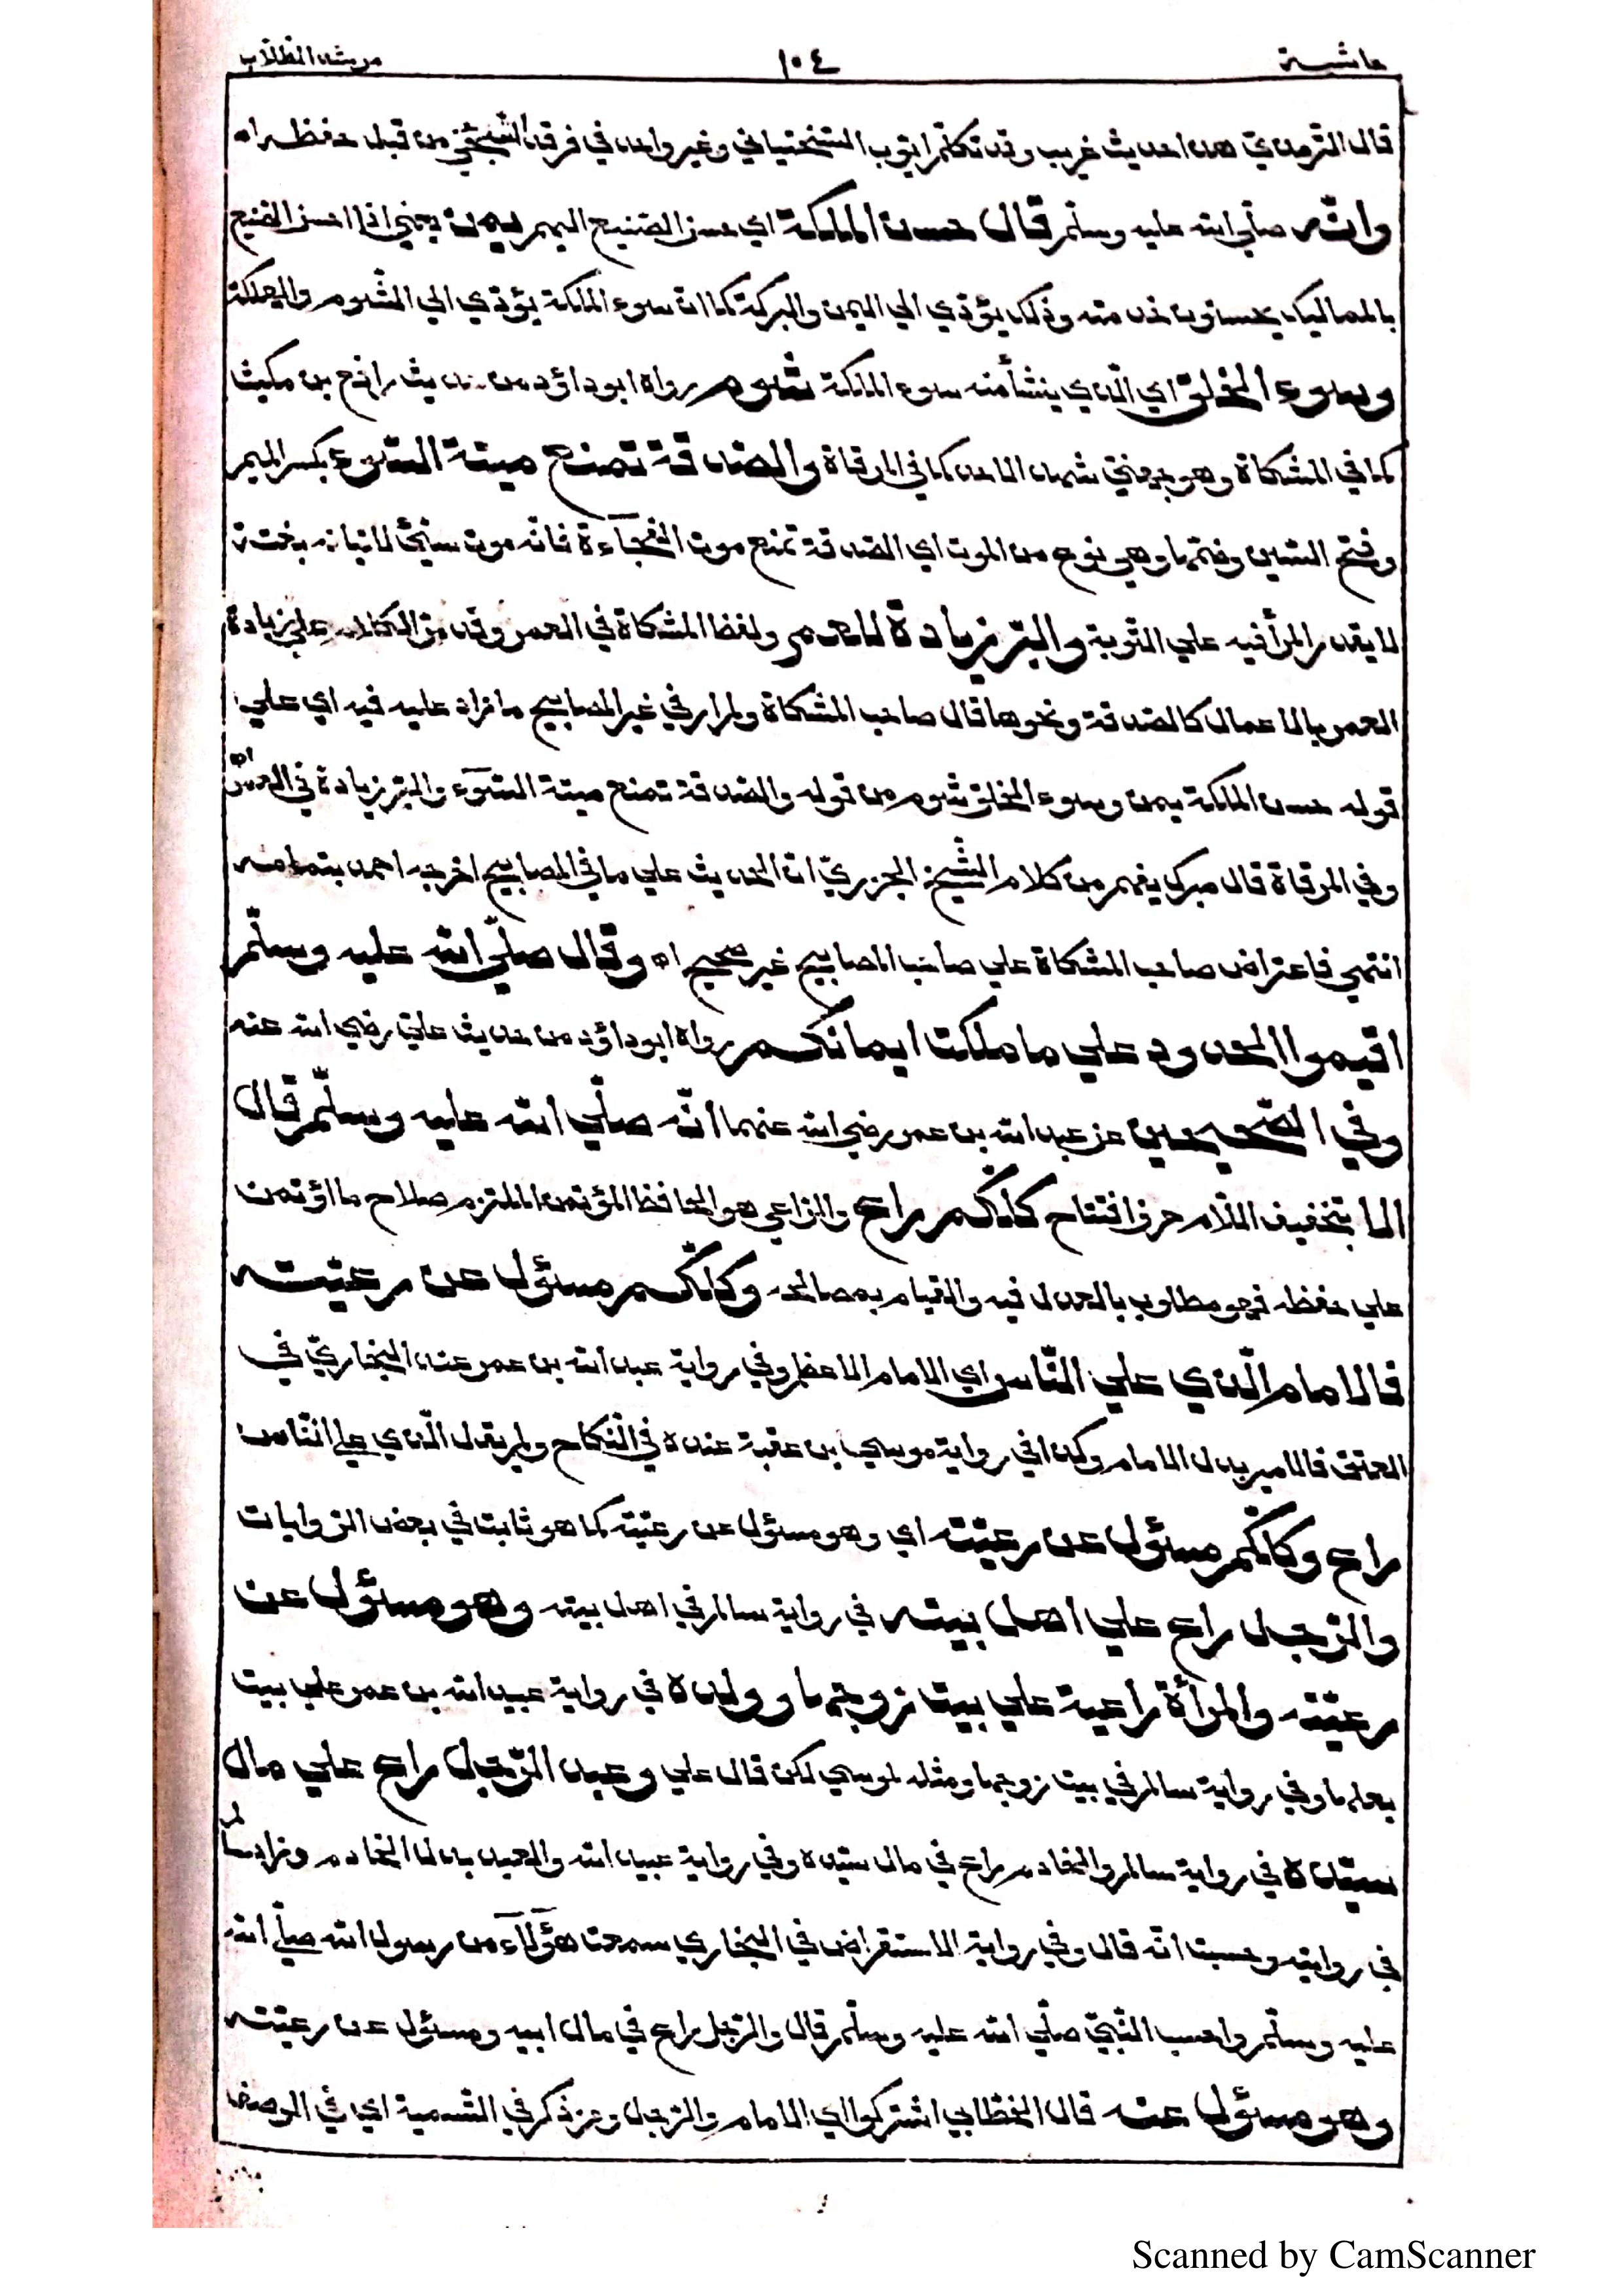 حاشية ١٠٤ مرشد الطلاب
قال الترمذي هذا حديث غريب وقد تكلم ايوب السختياني وغير واحد في فرقد السبخي من قبل حفظه اه
وانّه صلي الله عليه وسلم قال حسن الملكة اي حسن الصنيع اليهم يمن يعني اذا احسن الصنيع
بالمماليك يحسنون خدمته وذلك يؤدي الي اليمن والبركة كما ان سوء الملكة يؤدي الي الشوم والهلكة
وسوء الخلق اي الّذي ينشأ منه سوء الملكة شوم رواه ابو داؤد من حديث رافع بن مكيث
كما في المشكاة وهو جهني شهد الحديبية كما في المرقاة والصدقة تمنع ميتة السّوء بكسر الميم
وفتح السين وضمها وهي نوع من الموت اي الصدقة تمنع موت الفجاءة فانّه موت سيّئ لاتيانه بغتة
لا يقدر المرأ فيه علي التوبة والبرّ زيادة للعمر ولفظ المشكاة في العمر وقد مرّ الكلام علي زيادة
العمر بالاعمال كالصدقة ونحوها قال صاحب المشكاة ولم ار في غير المصابيح ما زاد عليه فيه اي علي
قوله حسن الملكة يمن وسوء الخلق شوم من قوله والصدقة تمنع ميتة السّوء والبرّ زيادة في العمر اه
وفي المرقاة قال ميرك يفهم من كلام الشّيخ الجزريّ ان الحديث علي ما في المصابيح اخرجه احمد بتمامه
انتهي فاعتراض صاحب المشكاة علي صاحب المصابيح غير صحيح اه وقال صلّي الله عليه وسلّم
اقيموا الحدود علي ما ملكت ايمانكم رواه ابو داؤد من حديث عليّ رضي الله عنه
وفي الصّحيحين عن عبد الله بن عمر رضي الله عنهما انّه صلّي الله عليه وسلّم قال
الا بتخفيف اللام حرف افتتاح كلّكم راع والراعي هو الحافظ المؤتمن الملتزم صلاح ما اؤتمن
علي حفظه فهو مطلوب بالعدل فيه والقيام بمصالحه وكلّكم مسئول عن رعيّته
فالامام الّذي علي النّاس اي الامام الاعظم وفي رواية عبيد الله بن عمر عند البخاريّ في
العتق فالامير بدل الامام وكذا في رواية موسي بن عقبة عنده في النّكاح ولم يقل الّذي علي النّاس
راع وكلّكم مسئول عن رعيّته اي وهو مسئول عن رعيّته كما هو ثابت في بعض الرّوايات
والرّجل راع علي اهل بيته في رواية سالم في اهل بيته وهو مسئول عن
رعيّته والمرأة راعية علي بيت زوجها وولده في رواية عبيد الله بن عمر علي بيت
بعلها وفي رواية سالم في بيت زوجها ومثله لموسي لكن قال علي وعبد الرّجل راع علي مال
سيّده في رواية سالم والخادم راع في مال سيّده وفي رواية عبيد الله والعبد بدل الخادم وزاد سالم
في روايته وحسبت انّه قال وفي رواية الاستقراض في البخاري سمعت هؤلاء من رسول الله صلّي الله
عليه وسلّم واحسب النّبيّ صلّي الله عليه وسلّم قال والرّجل راع في مال ابيه ومسئول عن رعيّته
وهو مسئول عنه قال الخطّابي اشتركوا اي الامام والرّجل ومن ذكر في التّسمية اي في الوصف
Scanned by CamScanner